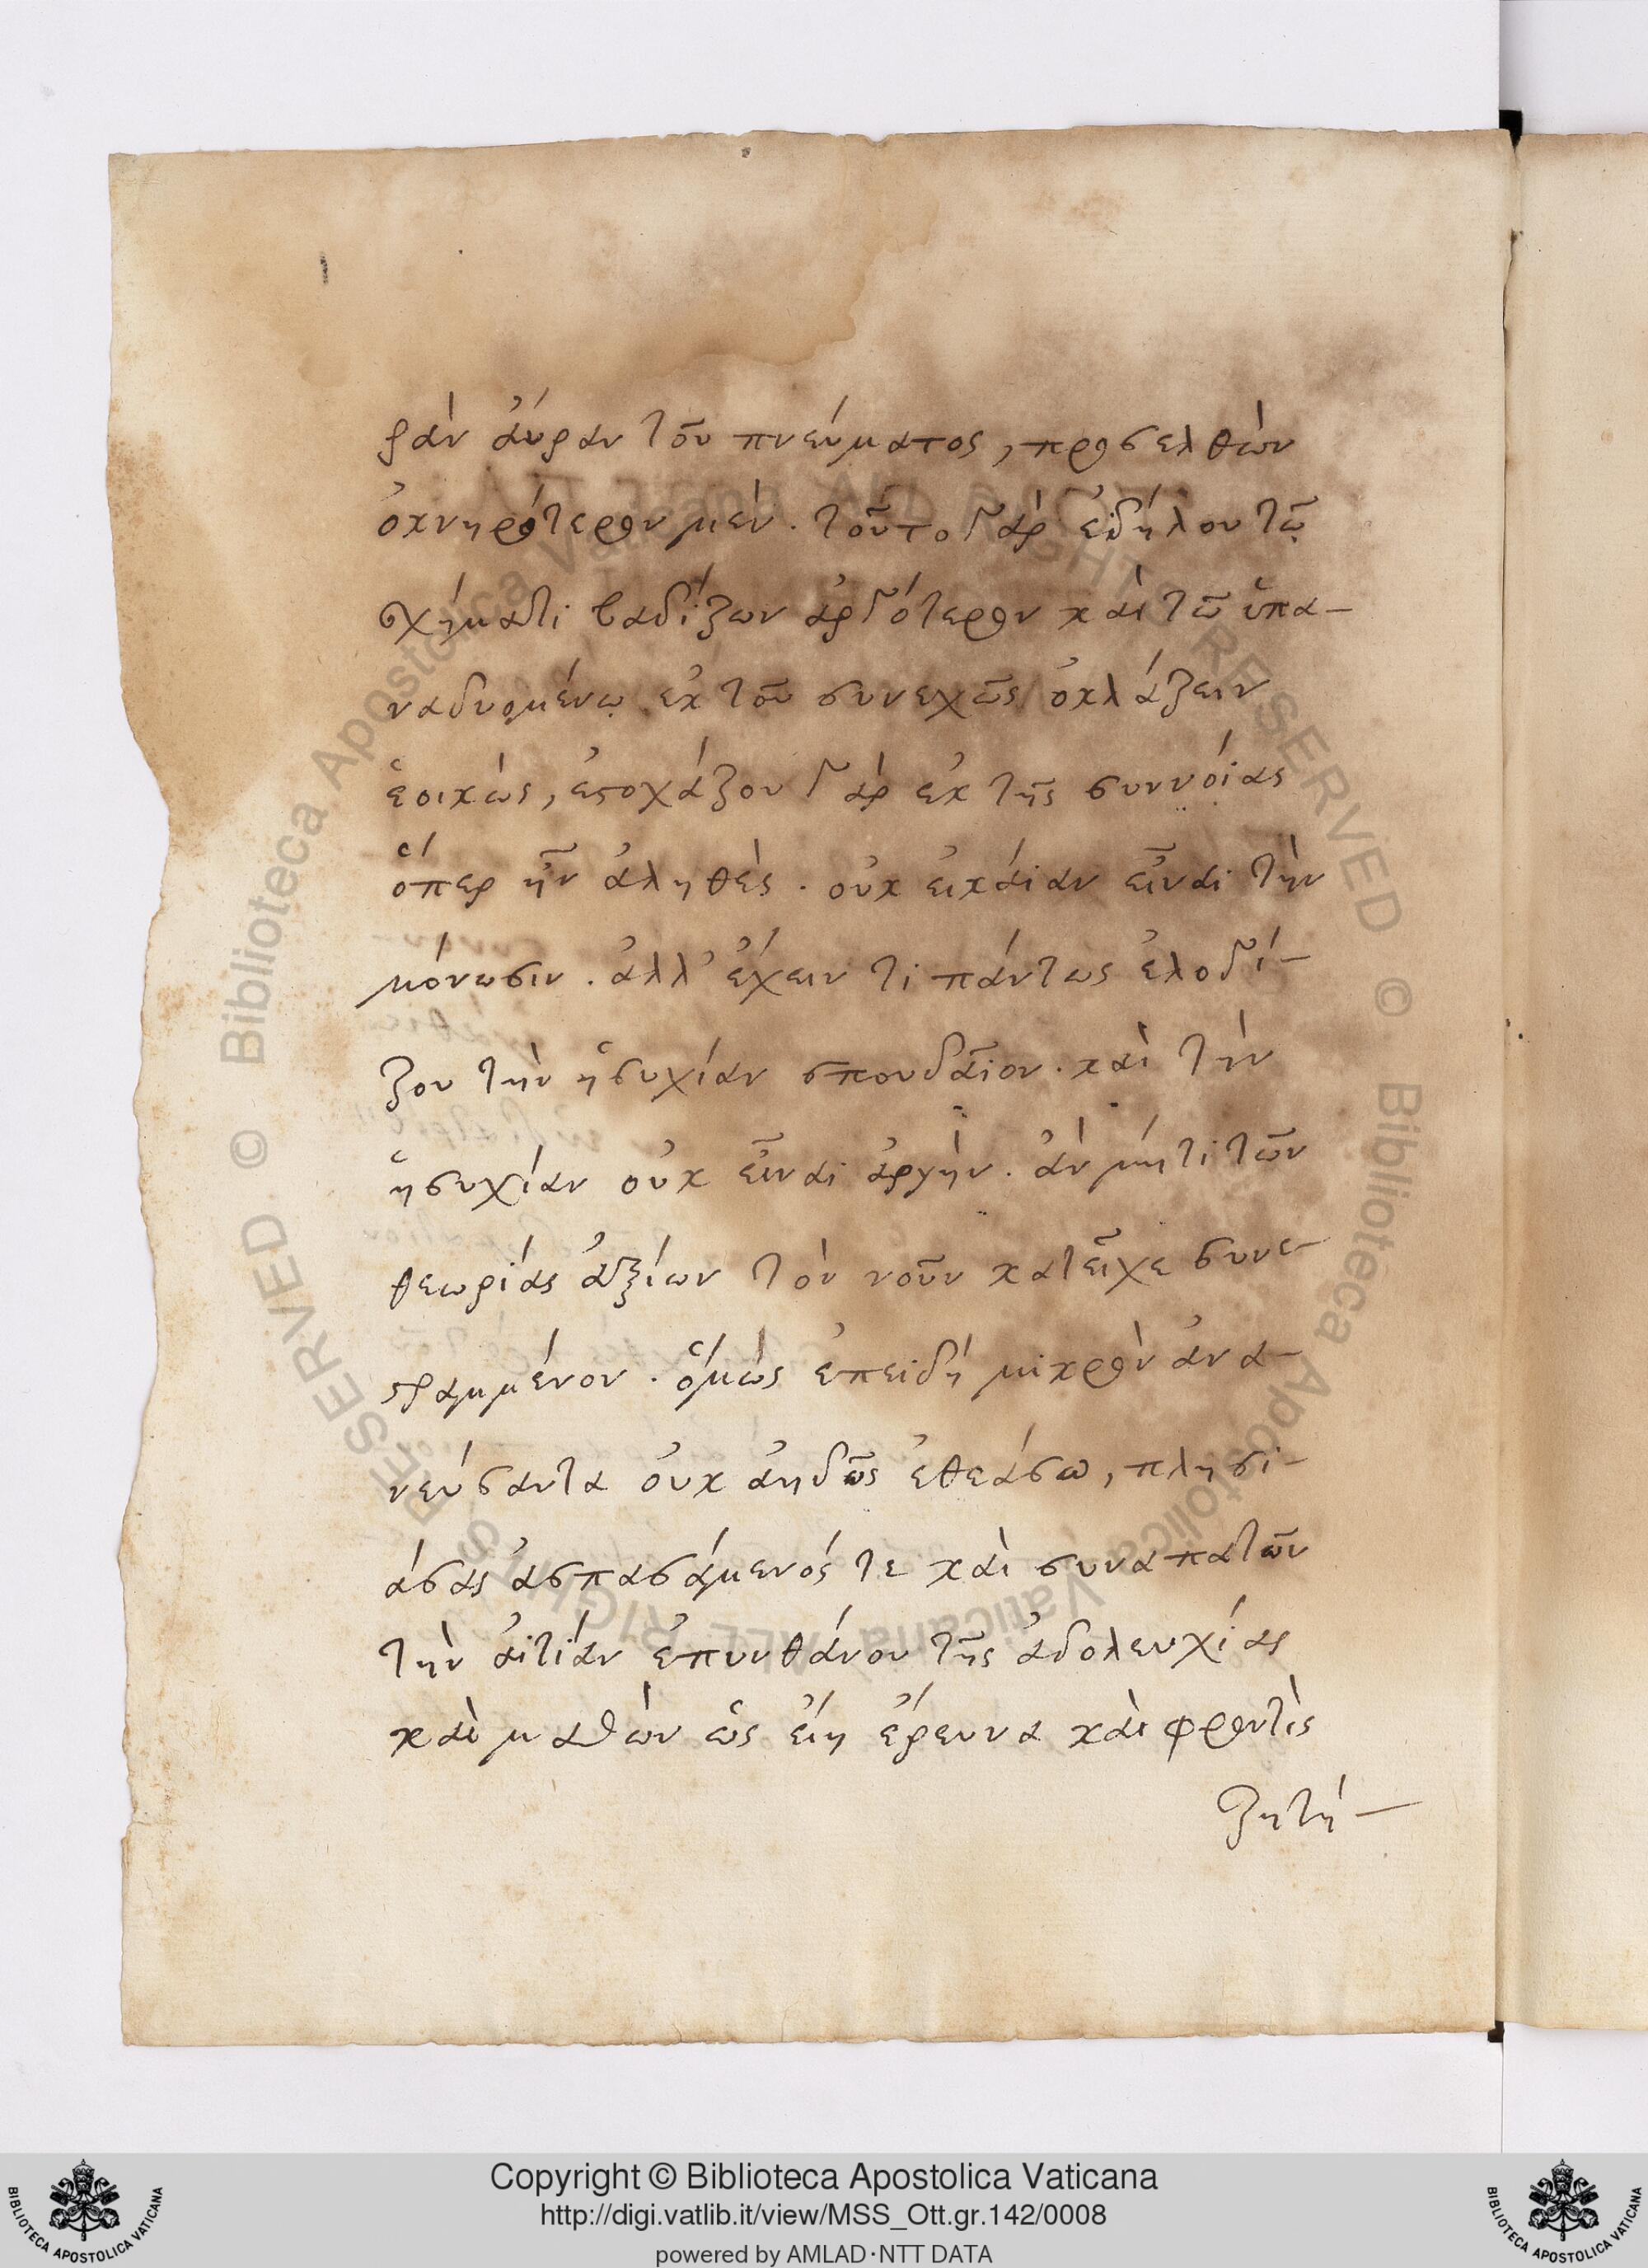 ρὰν ἄυραν τοῦ πνεύματος, προσελθὼν
ὀκνηρότερον μέν. τοῦτο γὰρ ἐδήλου τῷ
σχήματι βαδίζων ἀργότερον καὶ τῶ ὑπα-
ναδυομένῳ ἐκ τοῦ συνεχῶς ὀκλάζειν
ἐοικὼς, ἐστοχάζου γὰρ ἐκ τῆς συννοίας
ὅπερ ἦν ἀληθὲς. οὐκ εικάιαν εἶναι τὴν
μόνωσιν. ἀλλ' ἔχειν τι πάντως ἐλογί-
ζου τὴν ἡσυχίαν σπουδαῖον. καὶ τὴν
ἡσυχίαν οὐκ εἶναι ἀργὴν. ἀν μήτι τῶν
θεωρίας ἀξίων τὸν νοῦν κατεῖχε συνε-
στραμμένον. ὅμὼς ἐπειδή μικρὸν ἀνα-
νεύσαντα ὀυκ ἀηδῶς ἐθεάσω, πλησι-
άσας ἀσπασάμενός τε καὶ συναπατῶν
τὴν ἀιτίαν ἐπυνθάνου τῆς ἀδολεσχίας
καὶ μαθὼν ὡς ἔιη ἔρευνα καὶ φροντὶς
ζητή-
Copyright © Biblioteca Apostolica Vaticana
http://digi.vatlib.it/view/MSS_Ott.gr.142/0008
powered by AMLAD·NTT DATA